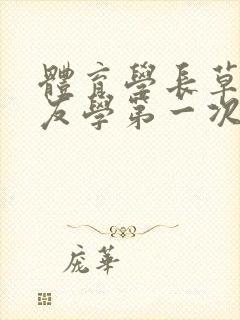 體育學長草
友學第一次
庞華